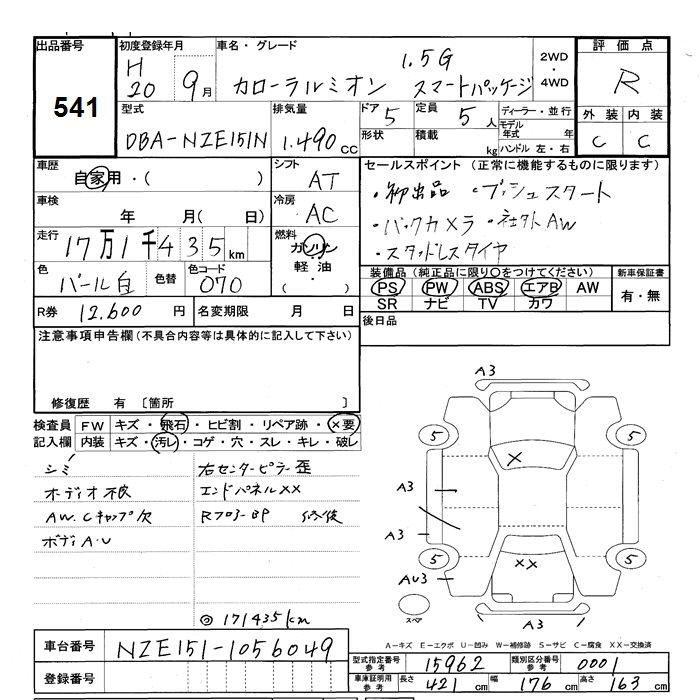 出品番号
541
初度登録年月
H 20 9月
車名・グレード
1.5G
カローラルミオン スマートパッケージ
2WD
・
4WD
評価点
R
外装 内装
C C
型式
DBA-NZE151N
排気量
1.490cc
ドア 5
定員 5人
形状
積載 kg
ディーラー・並行
モデル年式 年
ハンドル 左・右
車歴
自家用・( )
シフト
AT
車検
年 月(日)
冷房
AC
走行
17万1千435km
燃料
ガソリン
軽油
(・)
色
パール白
色替
色コード
070
R券 12.600円
名変期限 月 日
セールスポイント (正常に機能するものに限ります)
・初出品 ・プッシュスタート
・バックカメラ ・社外AW
・スタッドレスタイヤ
装備品 (純正品に限り○をつけてください)
PS PW ABS エアB AW
SR ナビ TV カワ
新車保証書
有・無
後日品
注意事項申告欄 (不具合内容等は具体的に記入して下さい)
修復歴 有 〔箇所 〕
検査員記入欄
FW キズ・飛石・ヒビ割・リペア跡・×要
内装 キズ・汚レ・コゲ・穴・スレ・キレ・破レ
シミ
オーディオ不良
AW.Cキャップ欠
ボディA・U
右センターピラー歪
エンドパネルXX
Rフロアー BP 修復
◎171435km
A3
5
5
×
A3
A3
××
5
5
AU3
スペア
A3
A-キズ E-エクボ U-凹み W-補修跡 S-サビ C-腐食 XX-交換済
車台番号 NZE151-1056049
登録番号
型式指定番号参考 15962
類別区分番号参考 0001
車庫証明用参考
長さ 421cm 幅 176cm 高さ 163cm